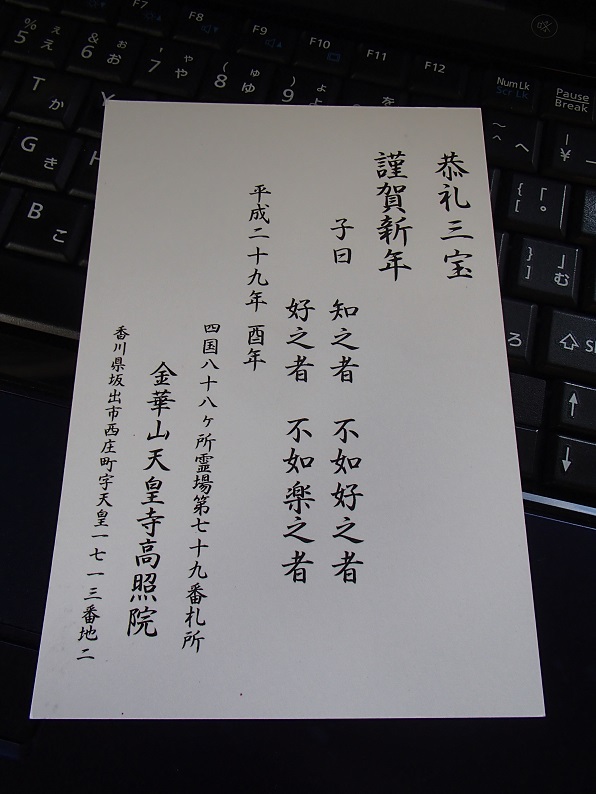 恭礼三宝
謹賀新年
子曰 知之者 不如好之者
好之者 不如楽之者
平成二十九年 酉年
四国八十八ヶ所霊場第七十九番札所
金華山天皇寺高照院
香川県坂出市西庄町字天皇一七一三番地二
F7
F8
F9
F10
F11
F12
Num Lk
Scr Lk
Pause
Break
% え
5 え
& お
6 お
' や
7 や
( ゆ
8 ゆ
) よ
9 よ
を
T か
Y
G き
H
B こ
~ へ
^ へ
|
¥ ー
{ 「
[ ゜
} 」
] む
ろ
⇧ Sh
↑
↓